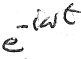 e^{-iωt}